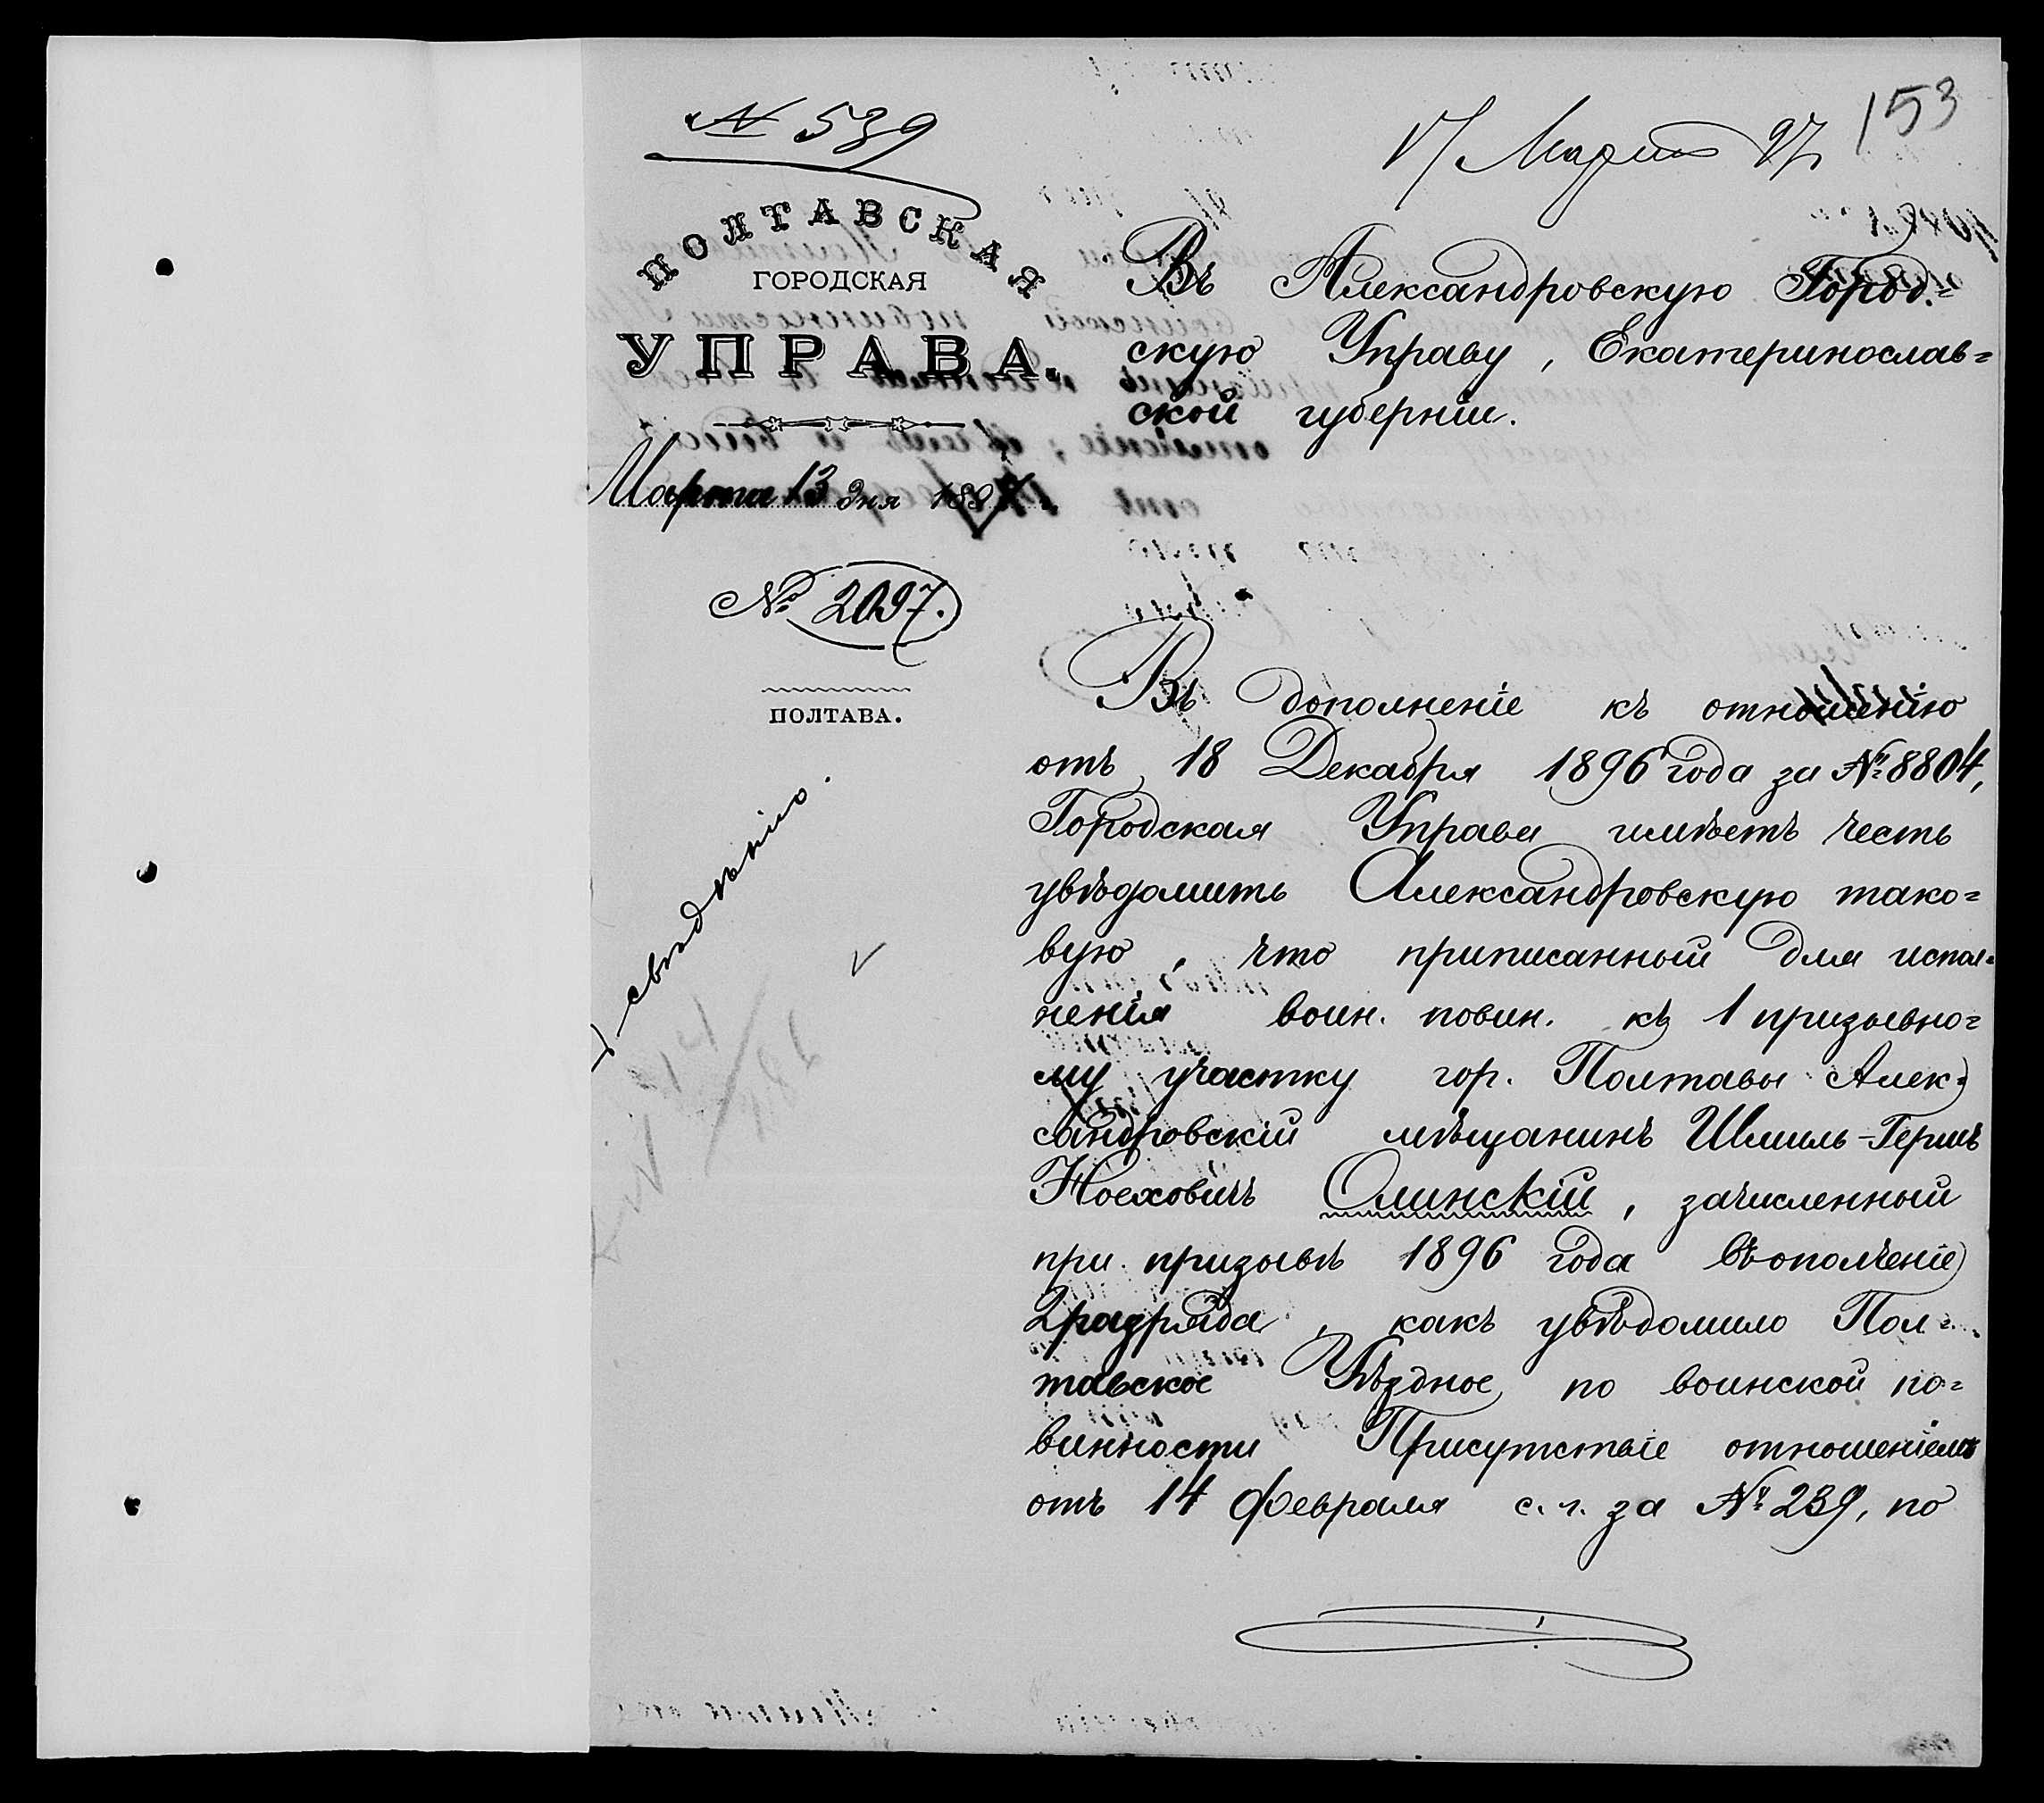 № 539
17 Марта 97
153
ПОЛТАВСКАЯ
ГОРОДСКАЯ
УПРАВА.
Марта 13 дня 1897
№ 2097.
ПОЛТАВА.
Къ свѣдѣнію.
Въ Александровскую Город=
скую Управу, Екатеринослав=
ской губерніи.
Въ дополненіе къ отношенію
отъ 18 Декабря 1896 года за № 8804,
Городская Управа имѣетъ честь
увѣдомить Александровскую тако=
вую, что приписанный для испол=
ненія воин. повин. къ 1 призывно=
му участку гор. Полтавы Алек=
сандровскій мѣщанинъ Шмиль-Гершъ
Ноеховичъ Олинскій, зачисленный
при призывѣ 1896 года въ ополченіе
2 разряда, какъ увѣдомило Пол=
тавское Уѣздное по воинской по=
винности Присутствіе отношеніемъ
отъ 14 Февраля с. г. за № 239, по